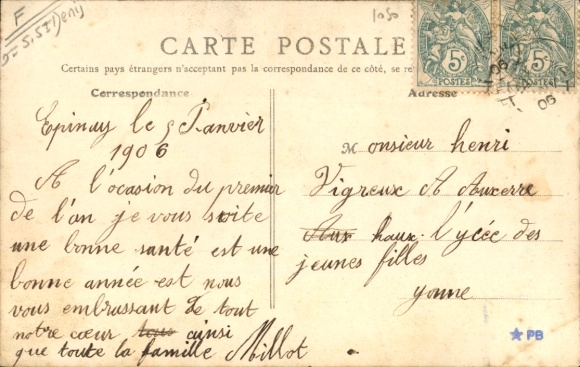 F
S. St Denis
1050
5c
POSTES
5c
POSTES
06
06
CARTE POSTALE
Certains pays étrangers n'acceptant pas la correspondance de ce côté, se re
Correspondance
Adresse
Epinay le 5 Janvier
1906
A l'ocasion du premier
de l'an je vous suite
une bonne santé est une
bonne année est nous
vous embrassant de tout
notre cœur tous ainsi
que toute la famille Millot
Monsieur henri
Vigreux A Auxerre
Aux haux. l'ycée des
jeunes filles
yonne
★ PB